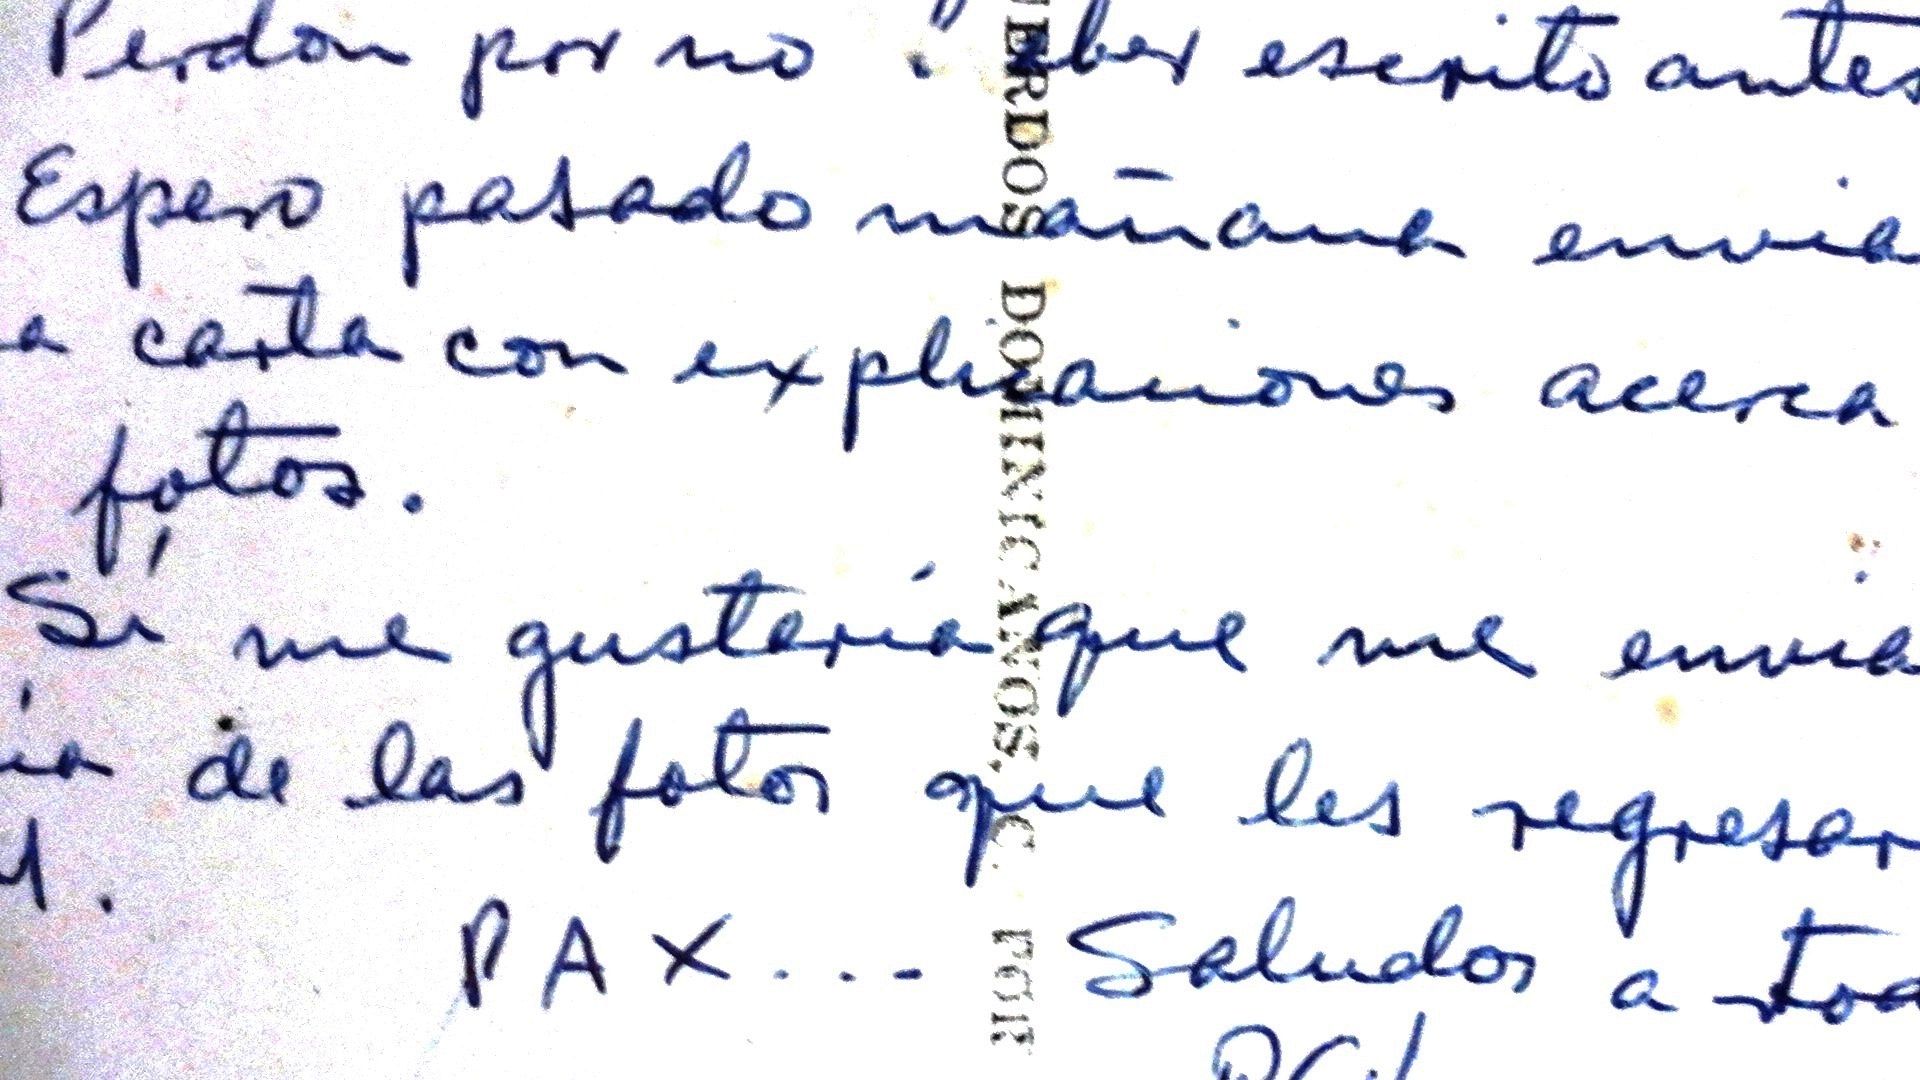 Perdon por no escrito antes
Espero pasado mañana envia
a carta con explicaciones acerca
fotos.
Sí me gustaría que me envia
ia de las fotos que les regresar
PAX... Saludos a
UERDOS DOMINICANOS, C. POR